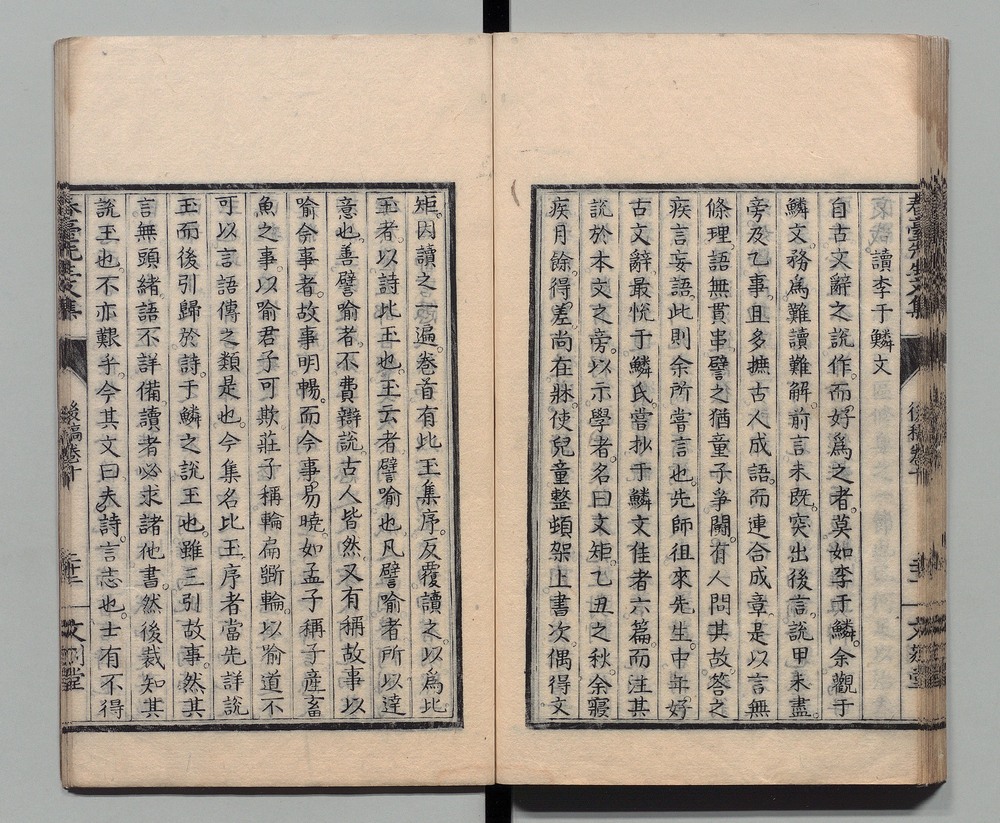 讀李于鱗文
自古文辭之說作而好爲之者莫如李于鱗余觀于
鱗文務爲難讀難解前言未既突出後言說甲未盡
旁及乙事且多摭古人成語而連合成章是以言無
條理語無貫串譬之猶童子爭鬪有人問其故答之
疾言妄語此則余所嘗言也先師徂來先生中年好
古文辭最悦于鱗氏嘗抄于鱗文佳者六篇而注其
說於本文之旁以示學者名曰文矩乙丑之秋余寢
疾月餘得差尚在牀使兒童整頓架上書次偶得文
春臺先生文集
後稿卷十
文刻堂
矩因讀之一遍卷首有比玉集序反覆讀之以爲比
玉者以詩比玉也玉云者譬喻也凡譬喻者所以達
意也善譬喻者不費辯說古人皆然又有稱故事以
喻今事者故事明暢而今事易曉如孟子稱子產畜
魚之事以喻君子可欺莊子稱輪扁斲輪以喻道不
可以言語傳之類是也今集名比玉序者當先詳說
玉而後引歸於詩于鱗之說玉也雖三引故事然其
言無頭緒語不詳備讀者必求諸他書然後裁知其
說玉也不亦艱乎今其文曰夫詩言志也士有不得
春臺先生文集
後稿卷十
文刻堂